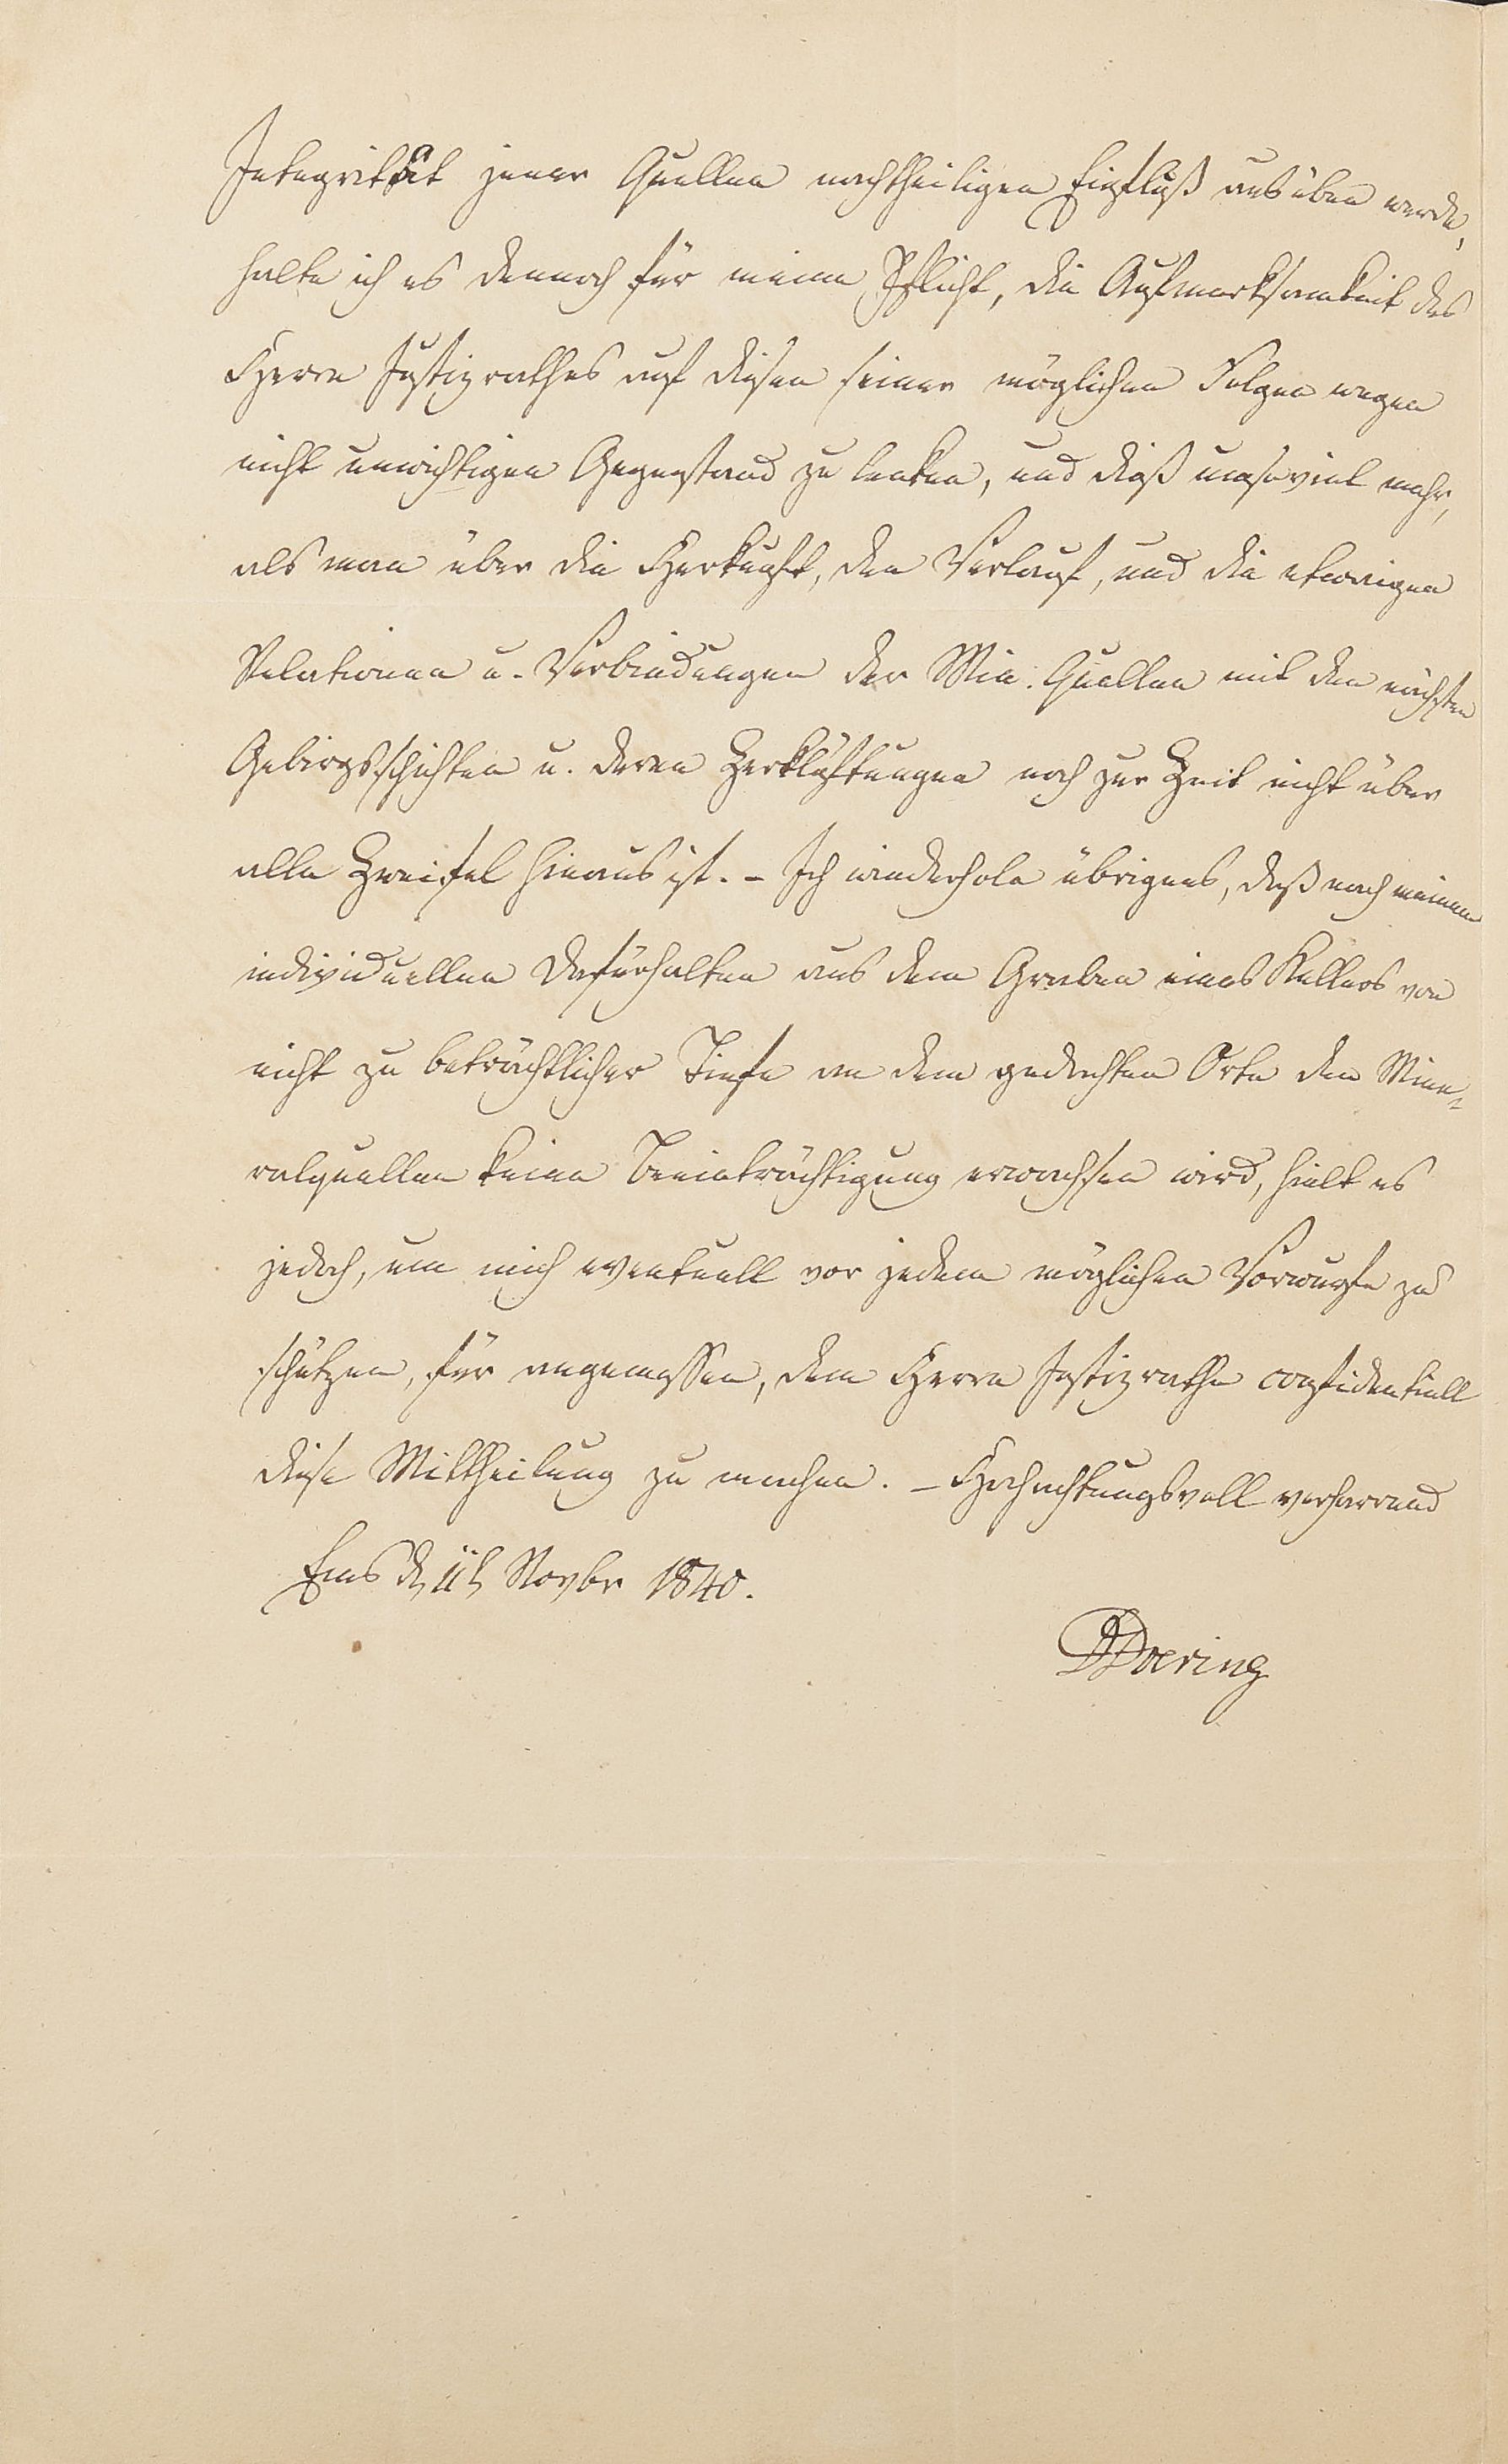 Integrität jener Quellen nachtheiligen Einfluß ausüben werde,
halte ich es dennoch für meine Pflicht, die Aufmerksamkeit des
Herrn Justizrathes auf diesen seiner möglichen Folgen wegen
nicht unwichtigen Gegenstand zu lenken, und dieß umsoviel mehr,
als man über die Herkunft, den Verlauf, und die etwaigen
Relationen u. Verbindungen der Min. Quellen mit den nächsten
Gebirgsschichten u. deren Zerklüftungen noch zur Zeit nicht über
alle Zweifel hinaus ist. – Ich wiederhole übrigens, daß nach meinem
individuellen Dafürhalten aus dem Graben eines Kellers von
nicht zu beträchtlicher Tiefe an dem gedachten Orte den Mine-
ralquellen keine Beeinträchtigung erwachsen wird, hielt es
jedoch, um mich eventuell vor jedem möglichen Vorwurfe zu
schützen, für angemessen, dem Herrn Justizrathe confidentiell
diese Mittheilung zu machen. – Hochachtungsvoll verharrend
Ems d. 11t Novbr 1840.
Doering